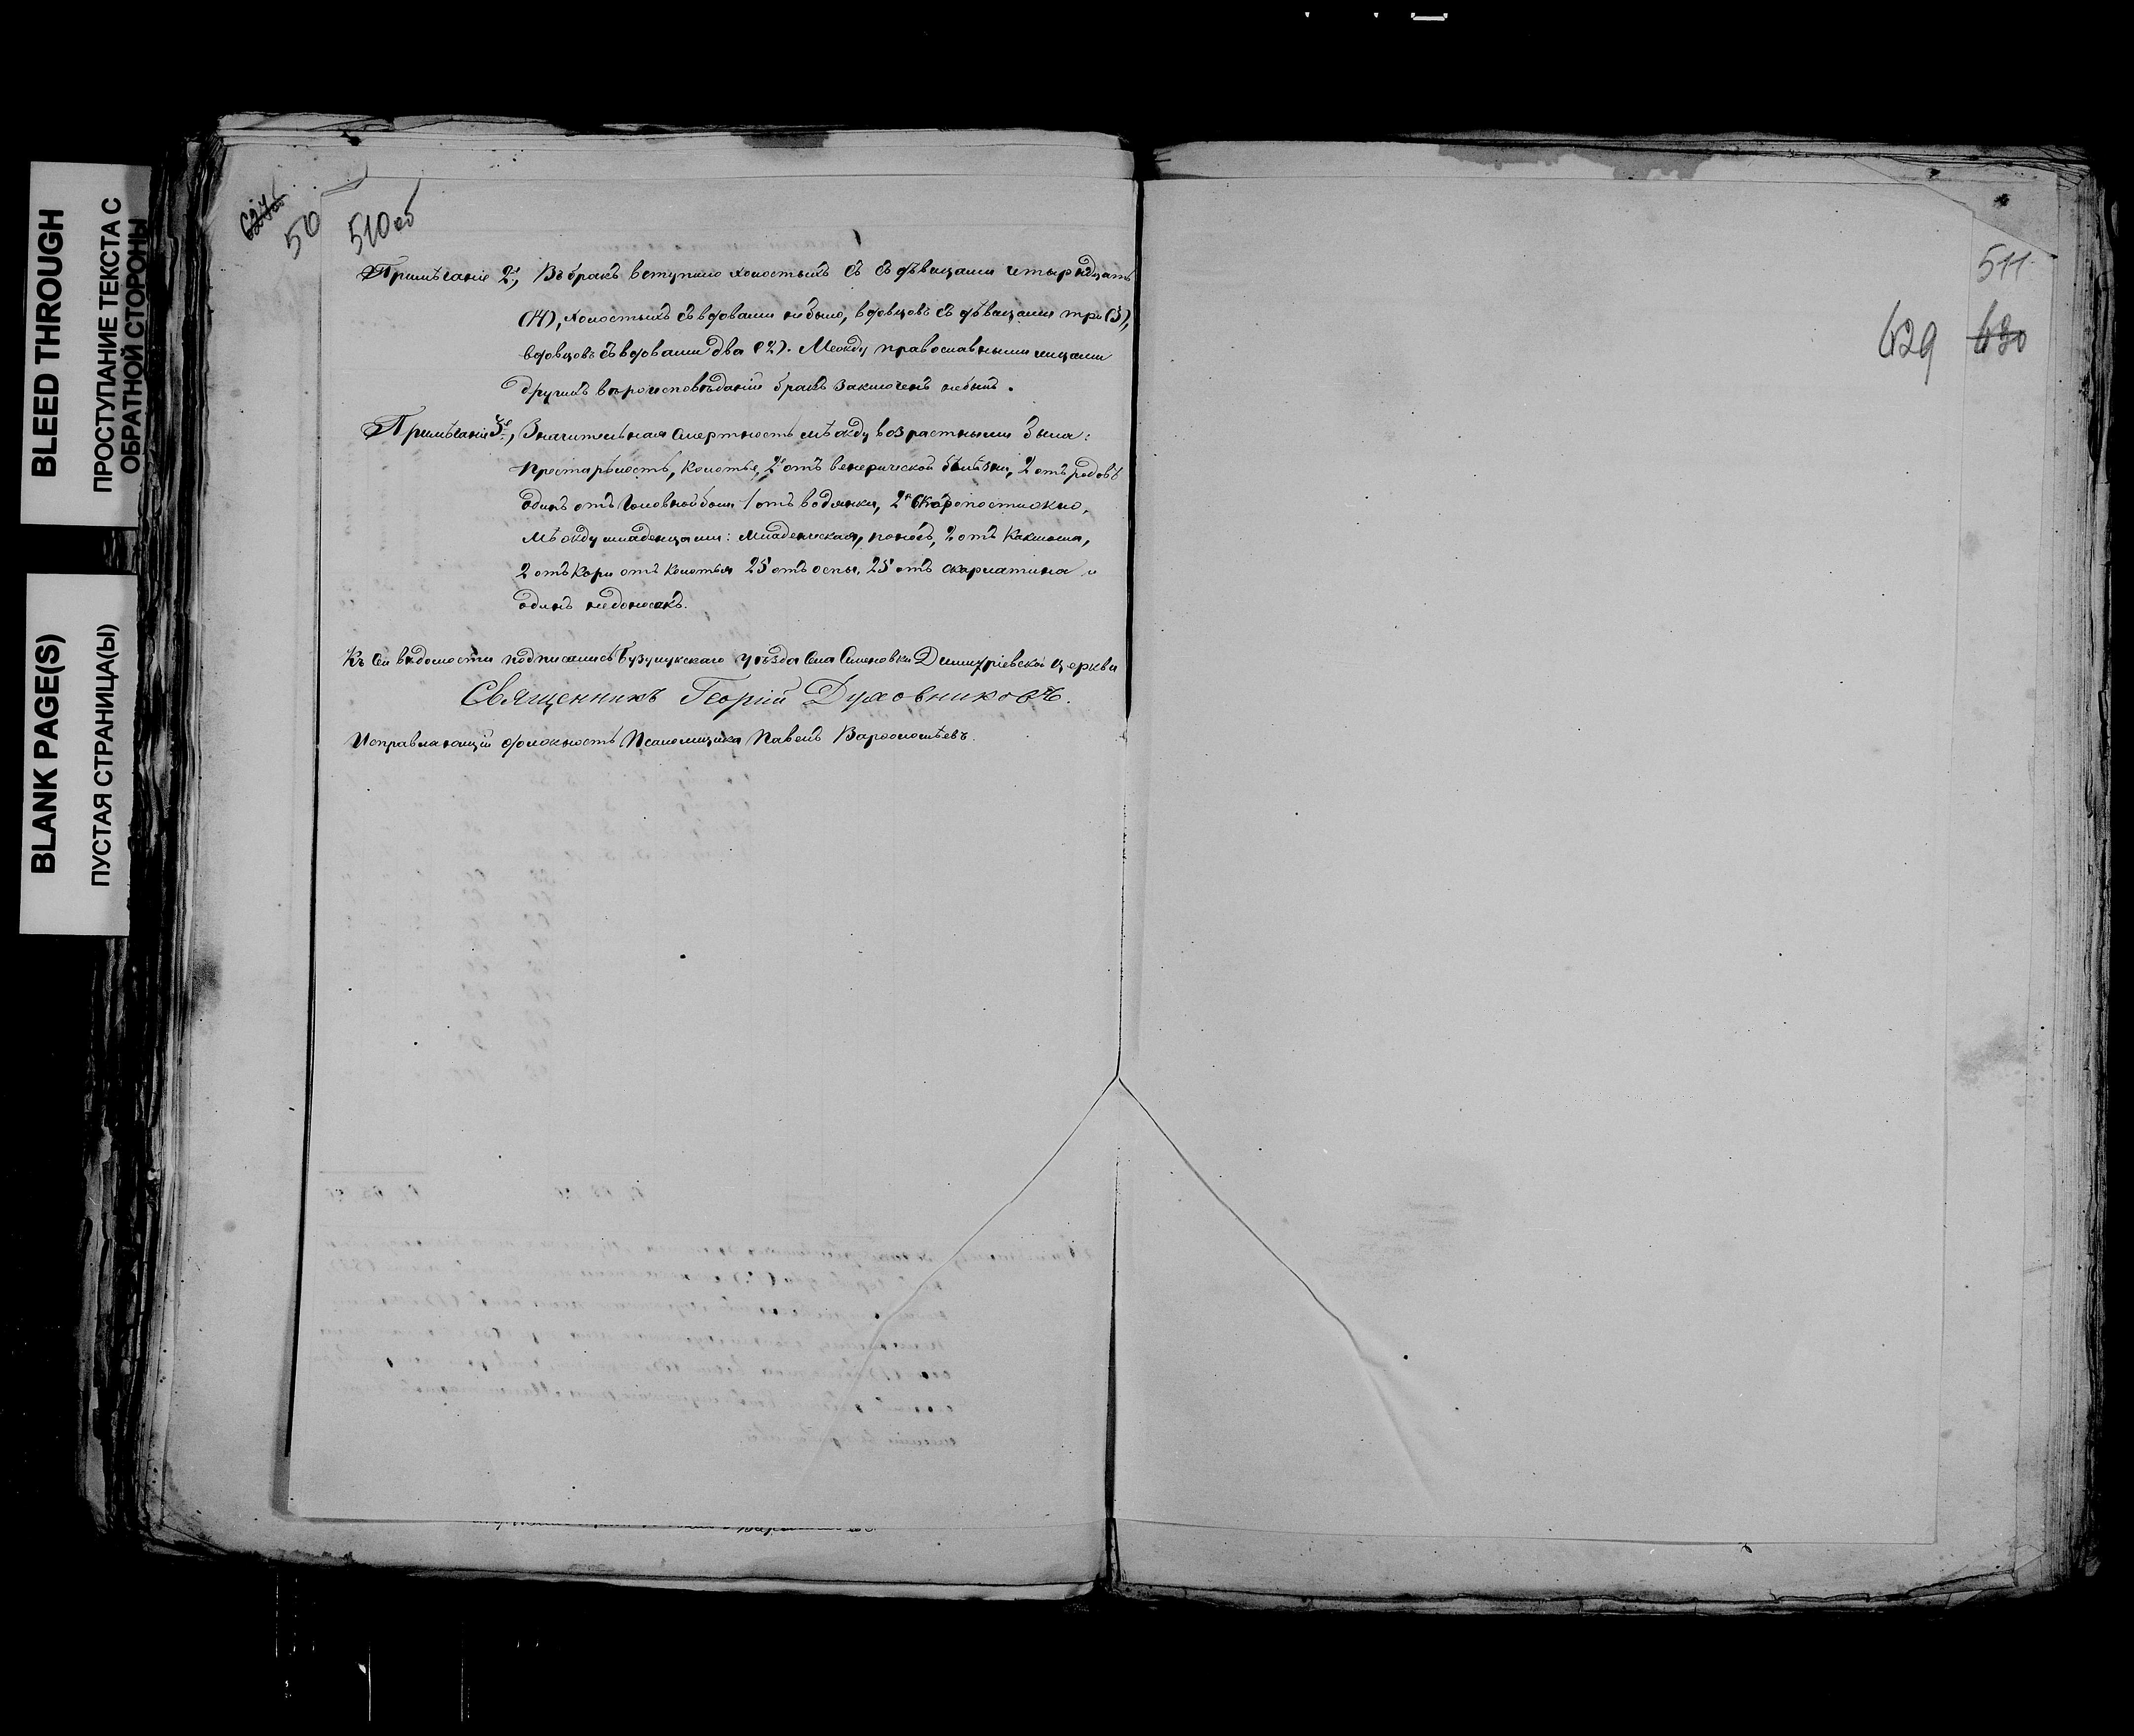 BLEED THROUGH
ПРОСТУПАНИЕ ТЕКСТА С
ОБРАТНОЙ СТОРОНЫ
BLANK PAGE(S)
ПУСТАЯ СТРАНИЦА(Ы)
627об
50 510об
Примѣчаніе 2е, Въ бракъ вступило холостыхъ съ съ дѣвицами четырнадцать
(14), холостыхъ съ вдовами небыло, вдовцовъ съ дѣвицами три (3),
вдовцовъ съ вдовами два (2). Между православными лицами
другихъ вѣроисповѣданій бракъ заключенъ небылъ.
Примѣчаніе 3е, Значительная смертность мѣжду возрастными была:
престарѣлость, колотье, 2 отъ венерической болѣзни, 2 отъ родовъ
одинъ отъ головной боли 1 отъ водянки, 2 скоропостижно,
мѣжду младенцами: младенческая, поносъ, 2 отъ кашля,
2 отъ кори отъ колотья 25 отъ оспы, 25 отъ скарлатина и
одинъ недоносокъ.
Къ сей вѣдомости подписались Бузулукскаго уѣзда села Семеновки Димитріевской церкви
Священникъ Георгій Духовниковъ.
Исправляющій должность Псаломщика Павелъ Варѳоломѣевъ.
511
629 630